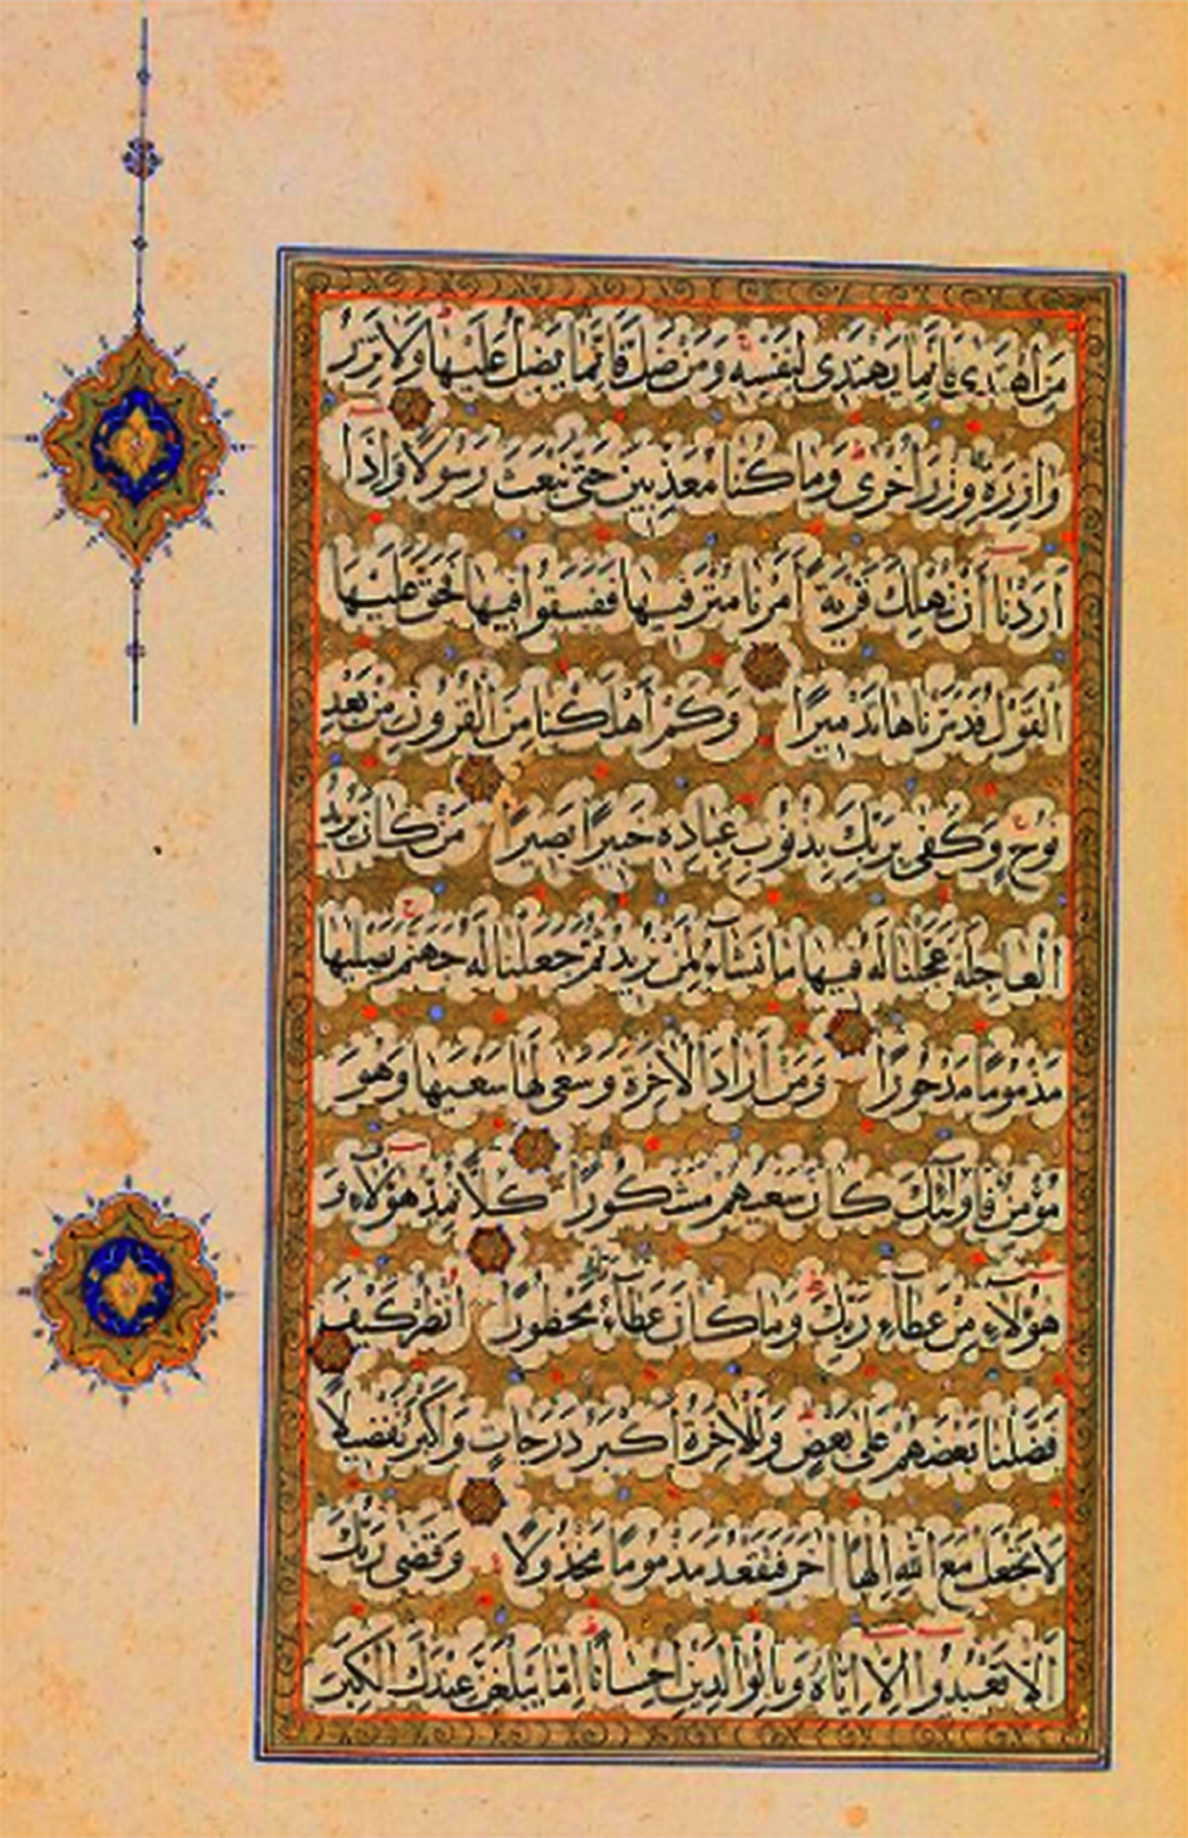 مَنِ اهْتَدَى فَإِنَّمَا يَهْتَدِى لِنَفْسِهِ وَمَنْ ضَلَّ فَإِنَّمَا يَضِلُّ عَلَيْهَا وَلَا تَزِرُ
وَازِرَةٌ وِزْرَ أُخْرَى وَمَا كُنَّا مُعَذِّبِينَ حَتَّى نَبْعَثَ رَسُولًا وَإِذَا
أَرَدْنَا أَنْ نُهْلِكَ قَرْيَةً أَمَرْنَا مُتْرَفِيهَا فَفَسَقُوا فِيهَا فَحَقَّ عَلَيْهَا
الْقَوْلُ فَدَمَّرْنَاهَا تَدْمِيرًا وَكَمْ أَهْلَكْنَا مِنَ الْقُرُونِ مِنْ بَعْدِ
نُوحٍ وَكَفَى بِرَبِّكَ بِذُنُوبِ عِبَادِهِ خَبِيرًا بَصِيرًا مَنْ كَانَ يُرِيدُ
الْعَاجِلَةَ عَجَّلْنَا لَهُ فِيهَا مَا نَشَاءُ لِمَنْ نُرِيدُ ثُمَّ جَعَلْنَا لَهُ جَهَنَّمَ يَصْلَيهَا
مَذْمُومًا مَدْحُورًا وَمَنْ أَرَادَ الْآخِرَةَ وَسَعَى لَهَا سَعْيَهَا وَهُوَ
مُؤْمِنٌ فَأُولَئِكَ كَانَ سَعْيُهُمْ مَشْكُورًا كُلًّا نُمِدُّ هَؤُلَاءِ وَ
هَؤُلَاءِ مِنْ عَطَاءِ رَبِّكَ وَمَا كَانَ عَطَاءُ مَحْظُورًا انْظُرْ كَيْفَ
فَضَّلْنَا بَعْضَهُمْ عَلَى بَعْضٍ وَلَلْآخِرَةُ أَكْبَرُ دَرَجَاتٍ وَأَكْبَرُ تَفْضِيلًا
لَا تَجْعَلْ مَعَ اللَّهِ إِلَهًا آخَرَ فَتَقْعُدَ مَذْمُومًا مَخْذُولًا وَقَضَى رَبُّكَ
أَلَّا تَعْبُدُوا إِلَّا إِيَّاهُ وَبِالْوَالِدَيْنِ إِحْسَانًا إِمَّا يَبْلُغَنَّ عِنْدَكَ الْكِبَرَ